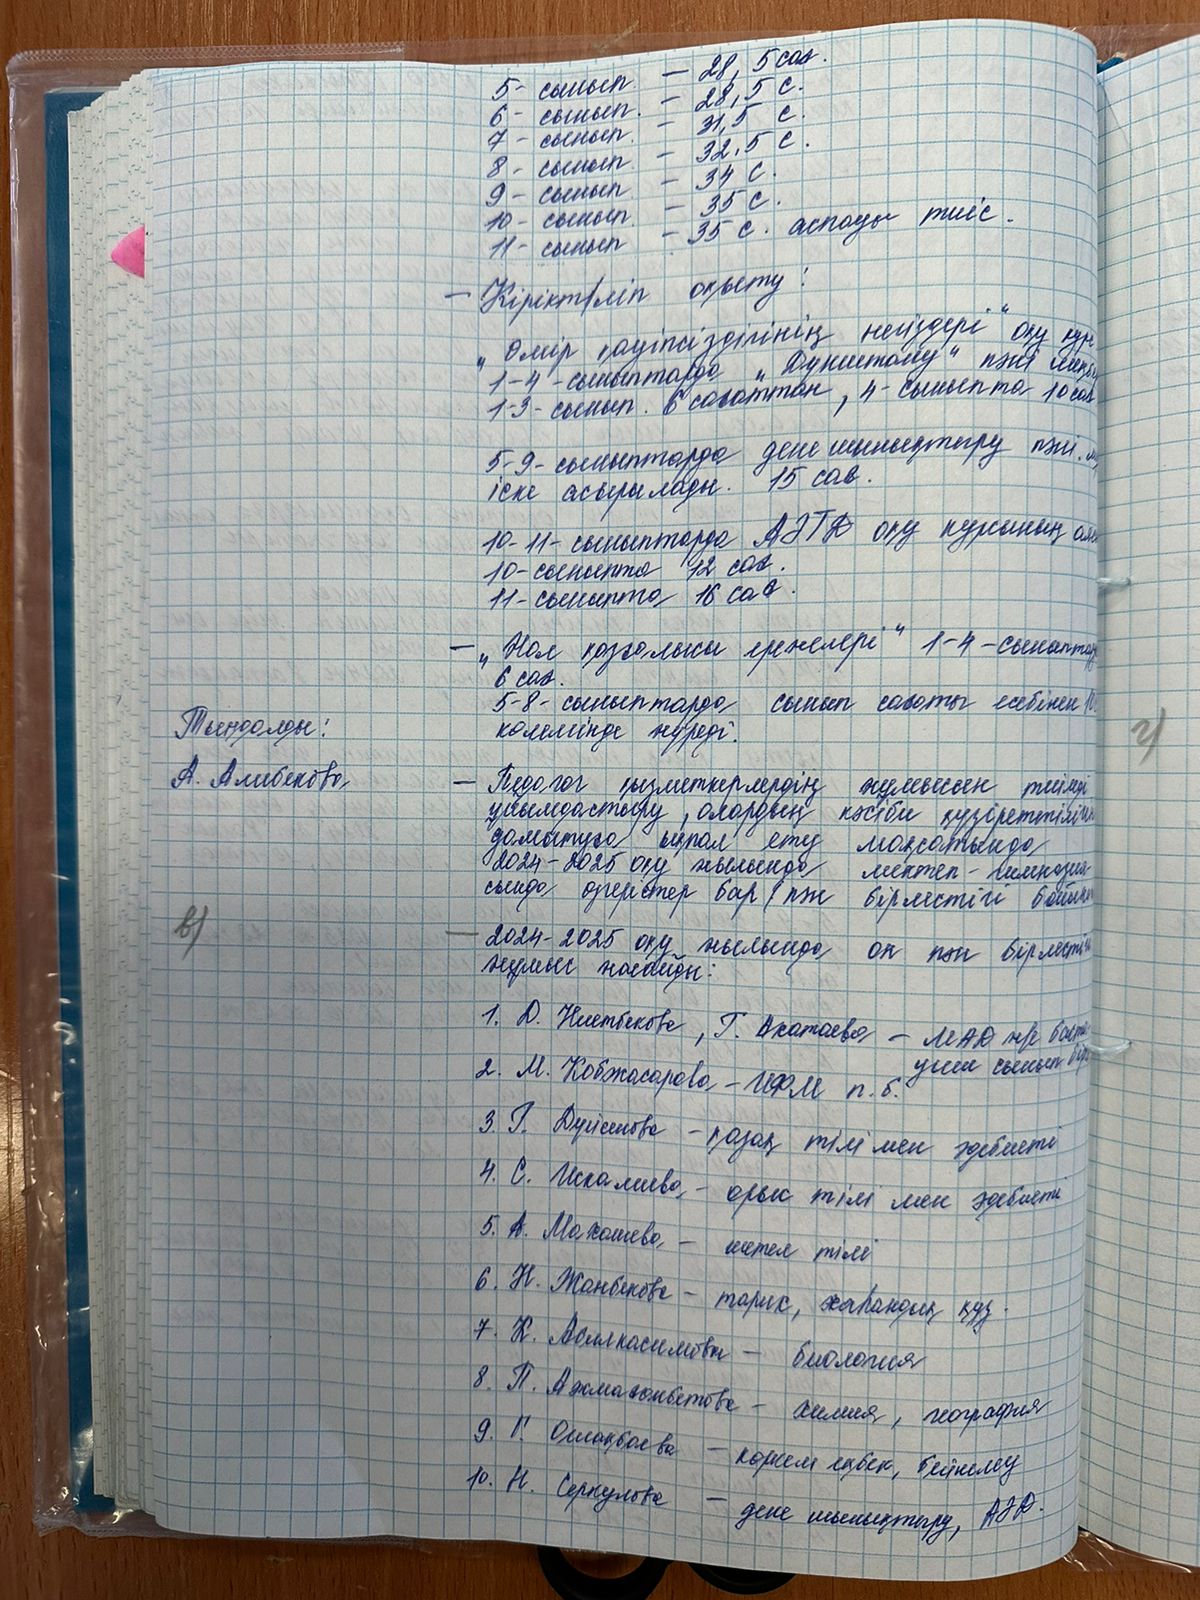 5- сынып. – 28,5 сағ.
6- сынып. – 28,5 с.
7- сынып. – 31,5 с.
8- сынып – 32,5 с.
9- сынып – 34 с.
10- сынып. – 35 с.
11- сынып – 35 с. аспауы тиіс.
– Кіріктіріліп оқыту:
„Өмір қауіпсіздігінің негіздері“ оқу
1-4-сыныптарда „Дүниетану“ пәні
1-3- сынып. 6 сағаттан, 4- сыныпта 10 сағ
5-9-сыныптарда дене шынықтыру пәні.
іске асырылады. 15 сағ.
10-11-сыныптарда АӘТД оқу курсының
10-сыныпта 12 сағ.
11-сыныпта 16 сағ.
– „Жол қозғалысы ережелері“ 1-4-сыныптар
6 сағ.
5-8-сыныптарда сынып сағаты есебінен 10
көлемінде жүреді.
Тыңдалды:
А. Алибекова
– Педагог қызметкерлердің жұмысын тиімді
ұйымдастыру, олардың кәсіби құзіреттілігін
дамытуға ықпал ету мақсатында
2024-2025 оқу жылында мектеп-гимназия
сында өзгерістер бар /пән бірлестігі бойынша
в)
– 2024-2025 оқу жылында он пән бірлестігі
жұмыс жасайды:
1. Д. Ниетбекова, Г. Акатаева – МАД және баста-
уыш сынып бір
2. М. Кобжасарова – ИФМ п.б.
3. Г. Дүйсенова – қазақ тілі мен әдебиеті
4. С. Искалиева – орыс тілі мен әдебиеті
5. А. Махашева – шетел тілі
6. Н. Жанбекова – тарих, жаһандық құз.
7. К. Абилкасимова – биология
8. П. – химия, география
9. Г. Оспанбаева – көркем еңбек, бейнелеу
10. Н. Серкулова – дене шынықтыру, АӘД.
г)